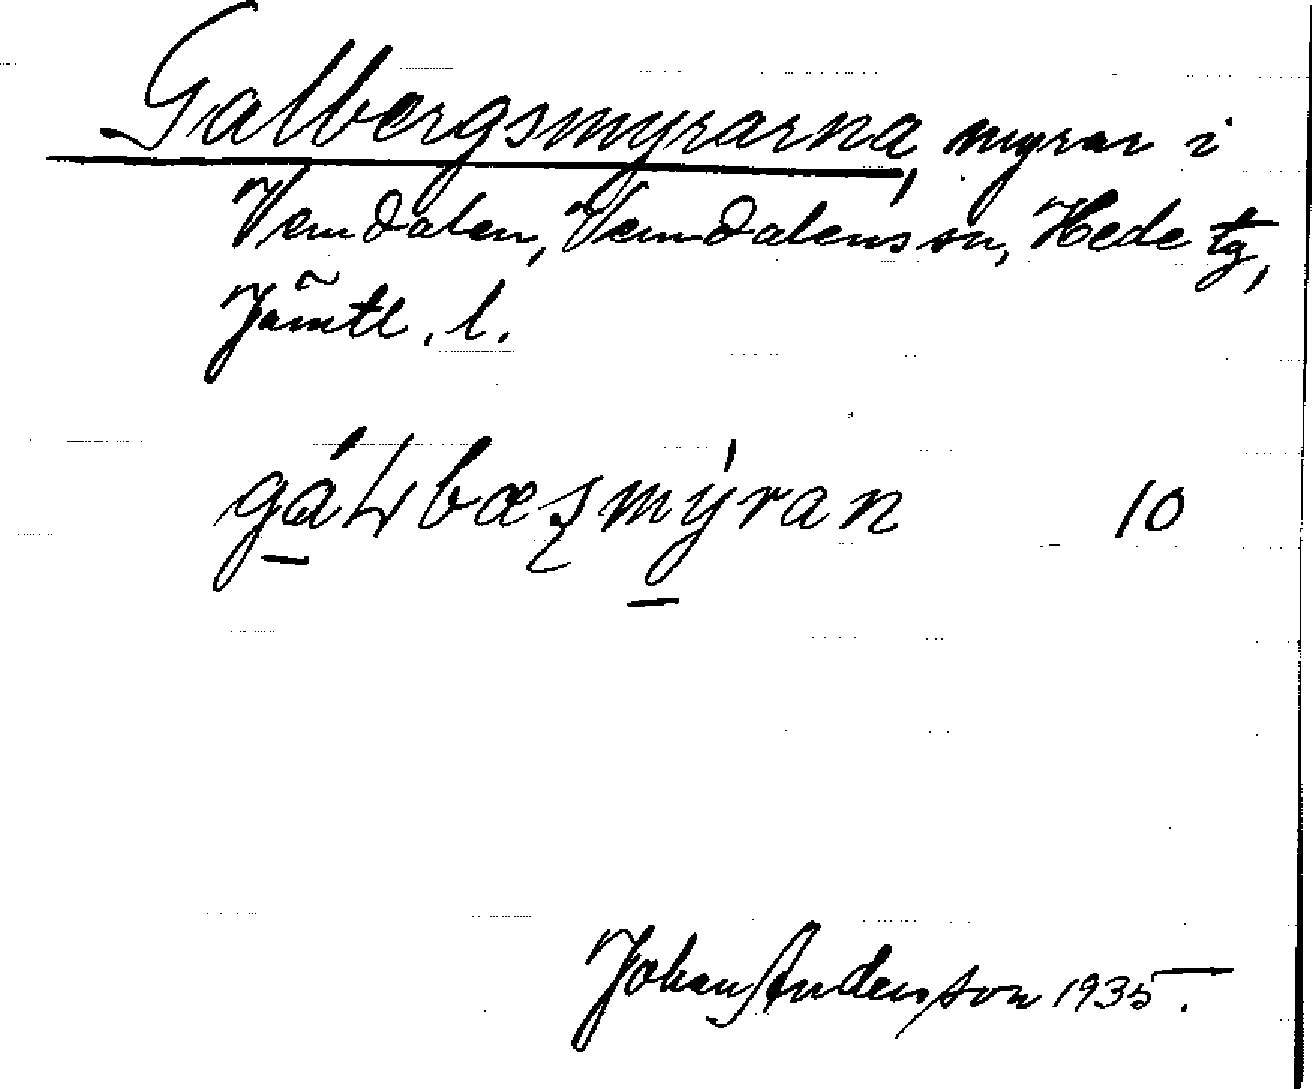 Galbergsmyrarna, myrar i
Vemdalen, Vemdalens sn, Hede tg,
Jämtl. l.
gáɫbæʂmýran 10
Johan Anderson 1935.